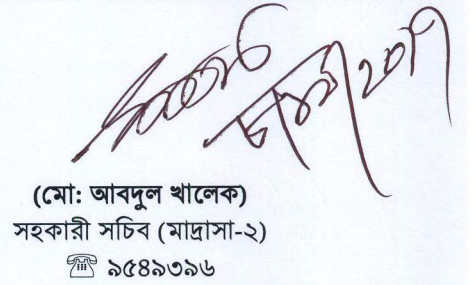 (মো: আবদুল খালেক)
সহকারী সচিব (মাদ্রাসা-২)
☏ ৯৫৪৯৩৯৬